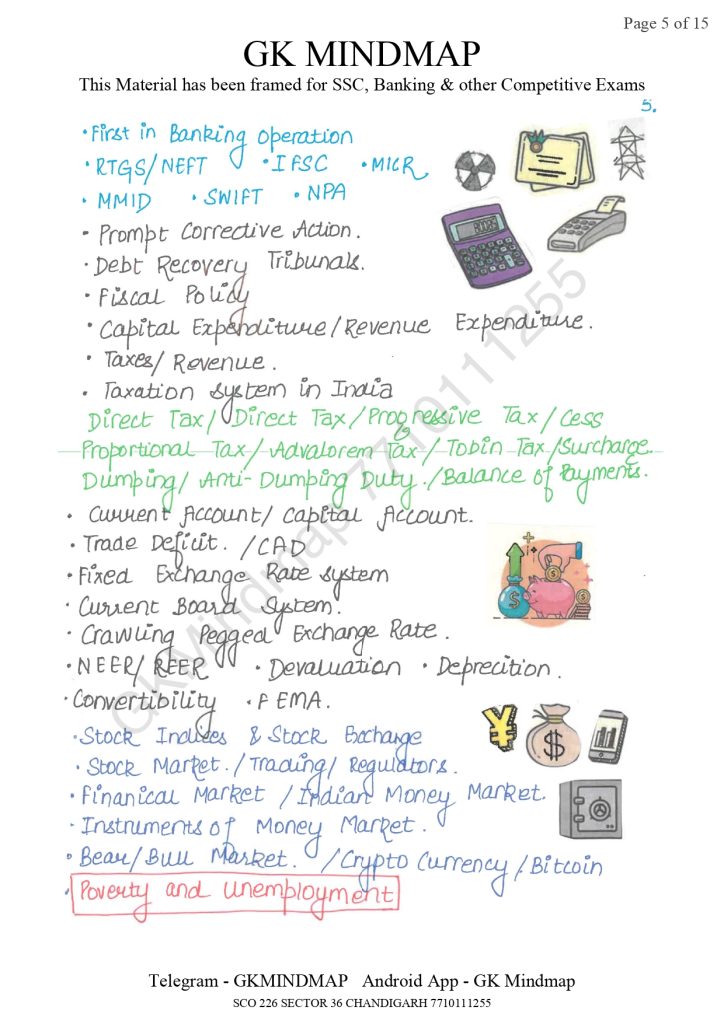 Page 5 of 15
GK MINDMAP
This Material has been framed for SSC, Banking & other Competitive Exams
5.
• First in Banking operation
• RTGS/NEFT • IFSC • MICR
• MMID • SWIFT • NPA
• Prompt Corrective Action.
• Debt Recovery Tribunals.
• Fiscal Policy
• Capital Expenditure/Revenue Expenditure.
• Taxes/Revenue.
• Taxation System in India
Direct Tax/ Direct Tax/Progressive Tax/Cess
Proportional Tax/Advalorem Tax/Tobin Tax/Surcharge
Dumping/Anti-Dumping Duty./Balance of Payments.
• Current Account/Capital Account.
• Trade Deficit. /CAD
• Fixed Exchange Rate System
• Current Board System.
• Crawling Pegged Exchange Rate.
• NEER/REER • Devaluation • Deprecition.
• Convertibility • FEMA.
• Stock Indices & Stock Exchange
• Stock Market./Trading/Regulators.
• Finanical Market /Indian Money Market.
• Instruments of Money Market.
• Bear/Bull Market. /Crypto Currency/Bitcoin
• Poverty and Unemployment
GKMindmap 7710111255
Telegram - GKMINDMAP Android App - GK Mindmap
SCO 226 SECTOR 36 CHANDIGARH 7710111255